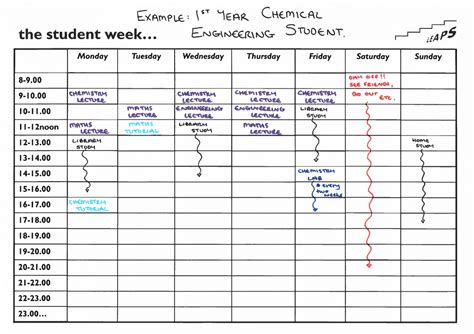 EXAMPLE: 1ST YEAR CHEMICAL
ENGINEERING STUDENT.
the student week...
LEAPS
Monday Tuesday Wednesday Thursday Friday Saturday Sunday
8-9.00
DAY OFF!!
SEE FRIENDS,
GO OUT
ETC.
9-10.00
CHEMISTRY LECTURE
CHEMISTRY LECTURE
CHEMISTRY LECTURE
CHEMISTRY LECTURE
10-11.00
MATHS LECTURE
ENGINEERING LECTURE
ENGINEERING LECTURE
LIBRARY STUDY
11-12noon
MATHS LECTURE
MATHS TUTORIAL
LIBRARY STUDY
MATHS LECTURE
12-13.00
LIBRARY STUDY
HOME STUDY
13-14.00
14-15.00
CHEMISTRY LAB
15-16.00
* EVERY TWO WEEKS
16-17.00
CHEMISTRY TUTORIAL
17-18.00
18-19.00
19-20.00
20-21.00
21-22.00
22-23.00
23.00...